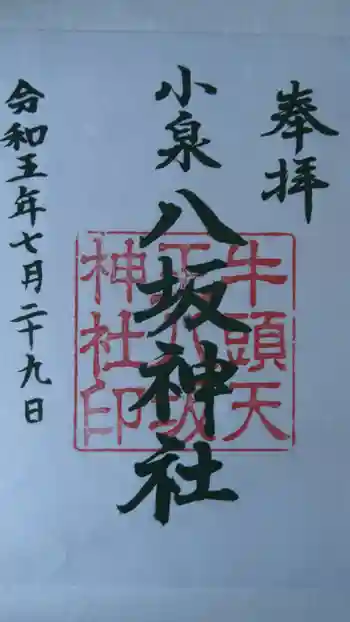 奉拝
小泉
八坂神社
令和五年七月二十九日
牛頭天
王八坂
神社印